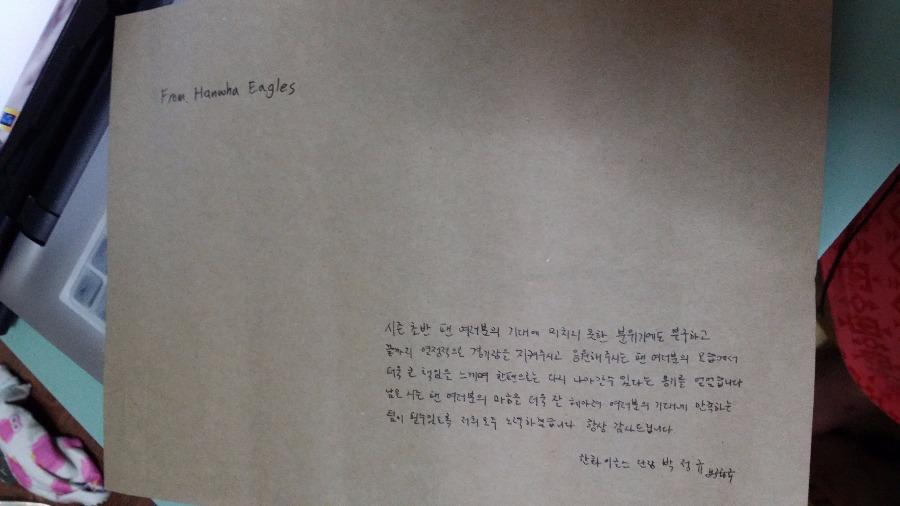 From. Hanwha Eagles
시즌 초반 팬 여러분의 기대에 미치지 못한 분위기에도 불구하고
끝까지 열정적으로 경기장을 지켜주시고 응원해주시는 팬 여러분의 모습에서
더욱 큰 책임을 느끼며 한편으로는 다시 나아갈수 있다는 용기를 얻었습니다
남은 시즌 팬 여러분의 마음을 더욱 잘 헤아려 여러분의 기대에 만족하는
팀이 될수있도록 저희 모두 노력하겠습니다 항상 감사드립니다
한화이글스 단장 박 정 규